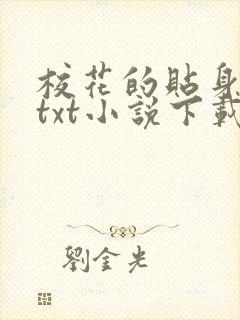 校花的貼身
txt小說下載
劉金光